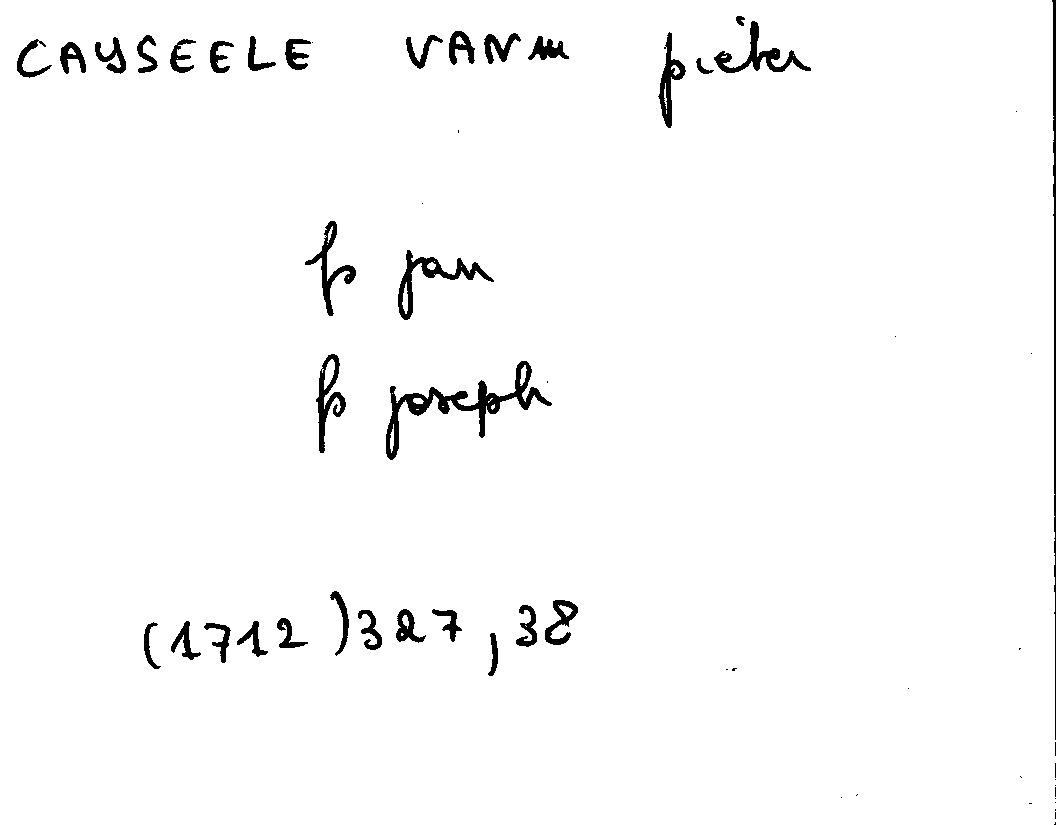 CAYSEELE VAN pieter
fs jan
fs joseph
(1712)327,38